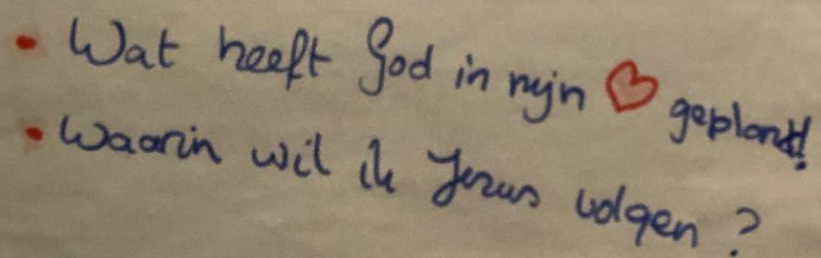 • Wat heeft God in mijn ♥ geplant!
• Waarin wil ik Jezus volgen?